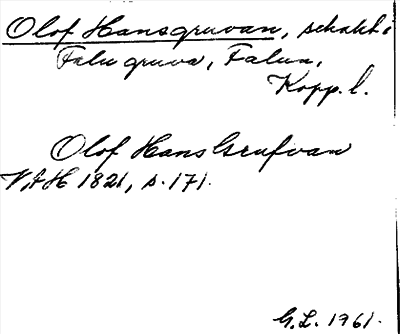 Olof Hansgruvan, schakt i
Falu gruva, Falun,
Kopp. l.
Olof Hans Grufvan
VAH 1821, s. 171.
G.L. 1961.